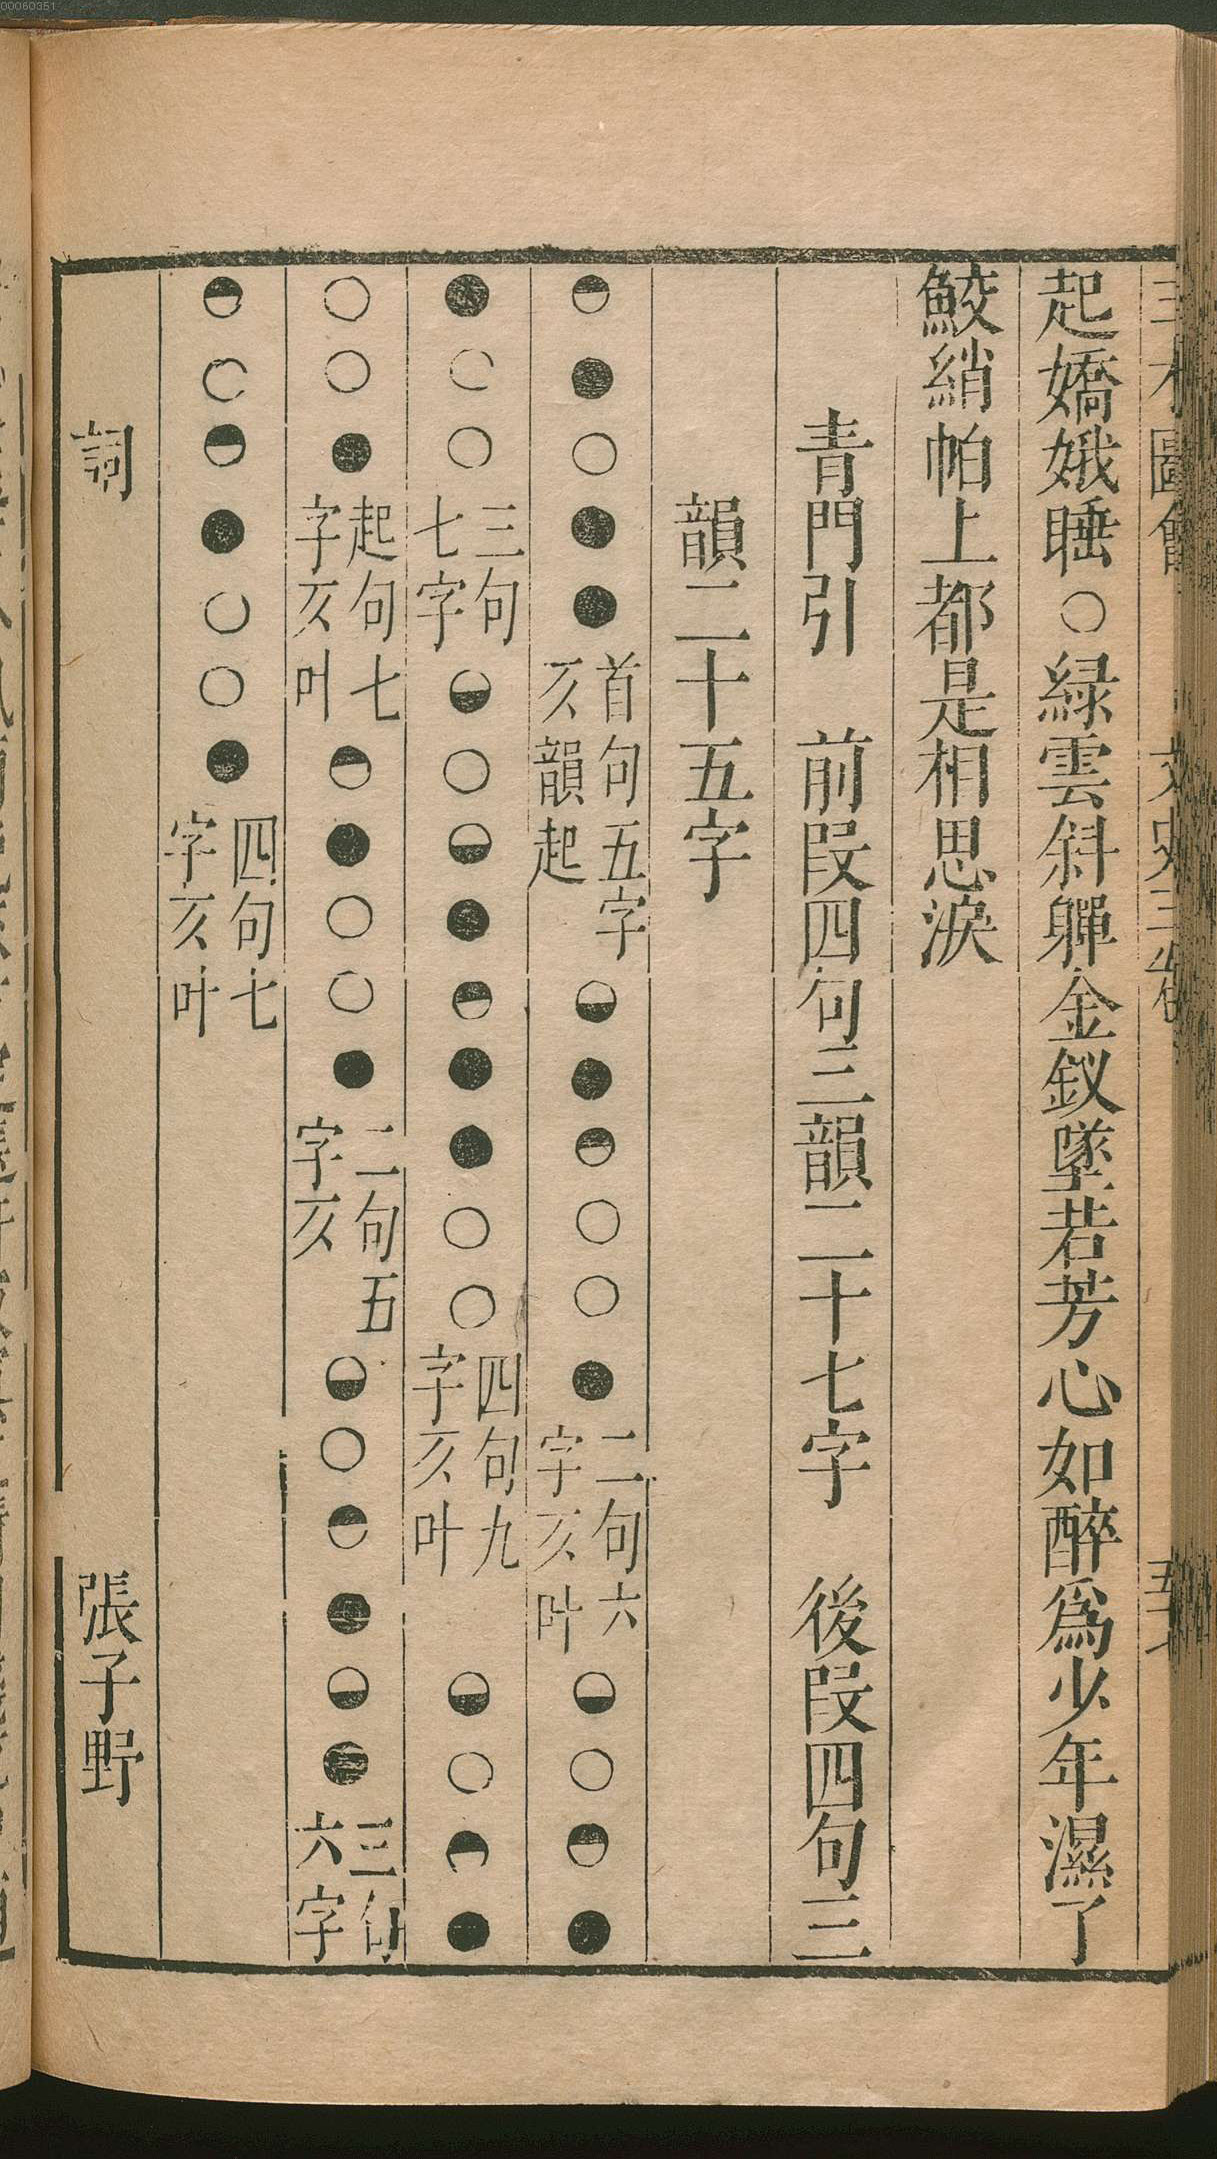 00060351
三才圖會 文史三卷
起嬌娥睡○緑雲斜軃金釵墜若芳心如醉爲少年濕了
鮫綃帕上都是相思淚
青門引 前段四句三韻二十七字 後段四句三
韻二十五字
◓●○●●首句五字仄韻起◒●◓○○●二句六字仄叶◒○◓●
●○○三句七字◒○◒●◓●●○○四句九字仄叶◒○◓●
○○●起句七字仄叶◓●○○●二句五字仄◒○◓●◒●三句六字
◓○◓●○○●四句七字仄叶
詞 張子野